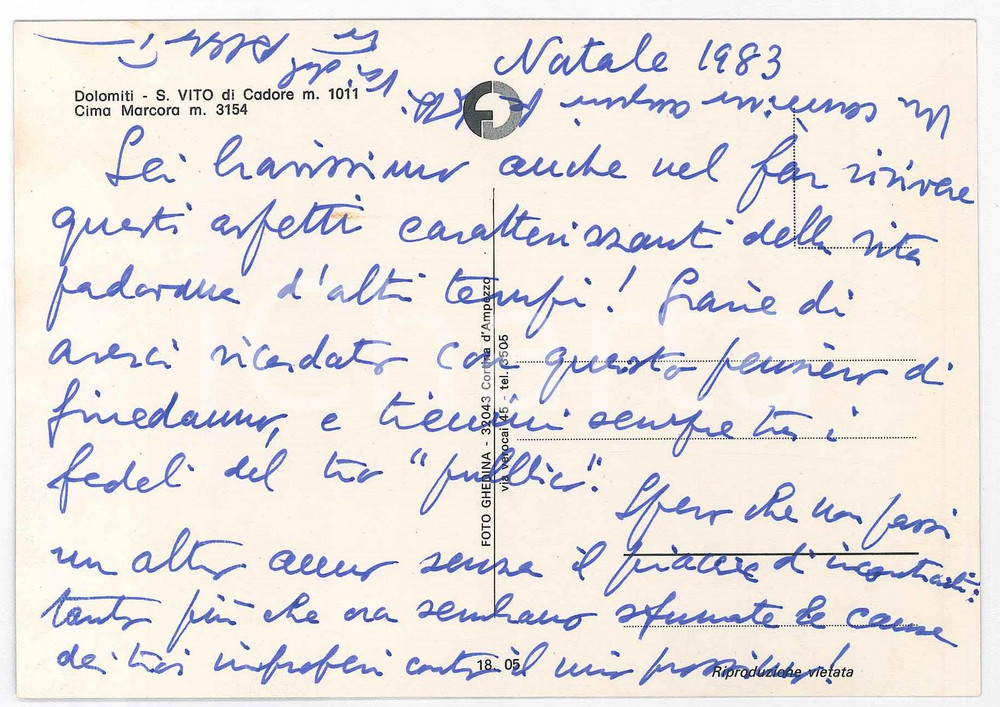 Natale 1983
Dolomiti - S. VITO di Cadore m. 1011
Cima Marcora m. 3154
Sei bravissimo anche nel far rivivere
questi aspetti caratterizzanti della vita
padovana d'altri tempi! Grazie di
averci ricordato con questo pensiero di
finedanno, e tienimi sempre tra i
fedeli del tuo "pubblico".
Spero che non passi
un altro anno senza il piacere d'incontrarti:
tanto più che ora sembrano sfumate le cause
dei tuoi improperi contro il mio
FOTO GHEDINA - 32043 Cortina d'Ampezzo
via verocai 45 - tel. 3505
18. 05
Riproduzione vietata